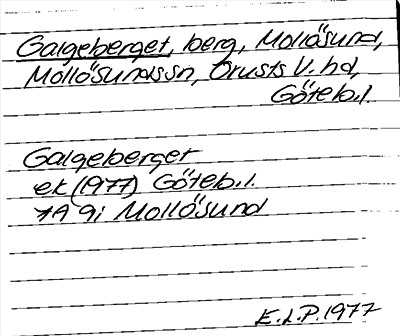 Galgeberget, berg, Mollösund,
Mollösunds sn, Orusts V. hd,
Göteb.l.
Galgeberget
ek (1977) Göteb.l.
7A 9i Mollösund
E.L.P. 1977